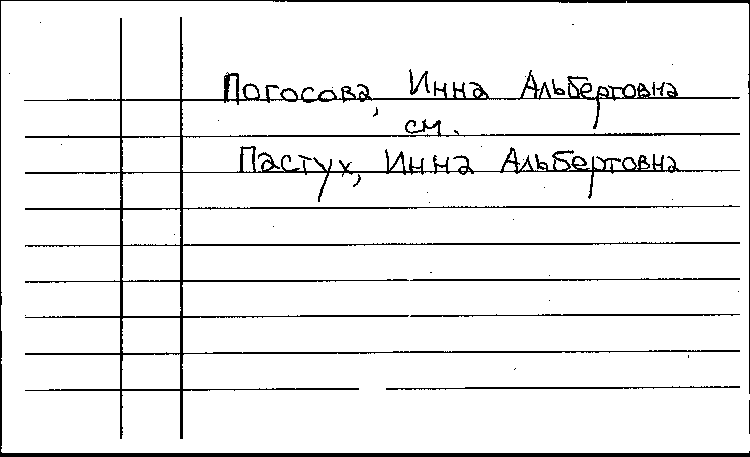 Погосова, Инна Альбертовна
см.
Пастух, Инна Альбертовна